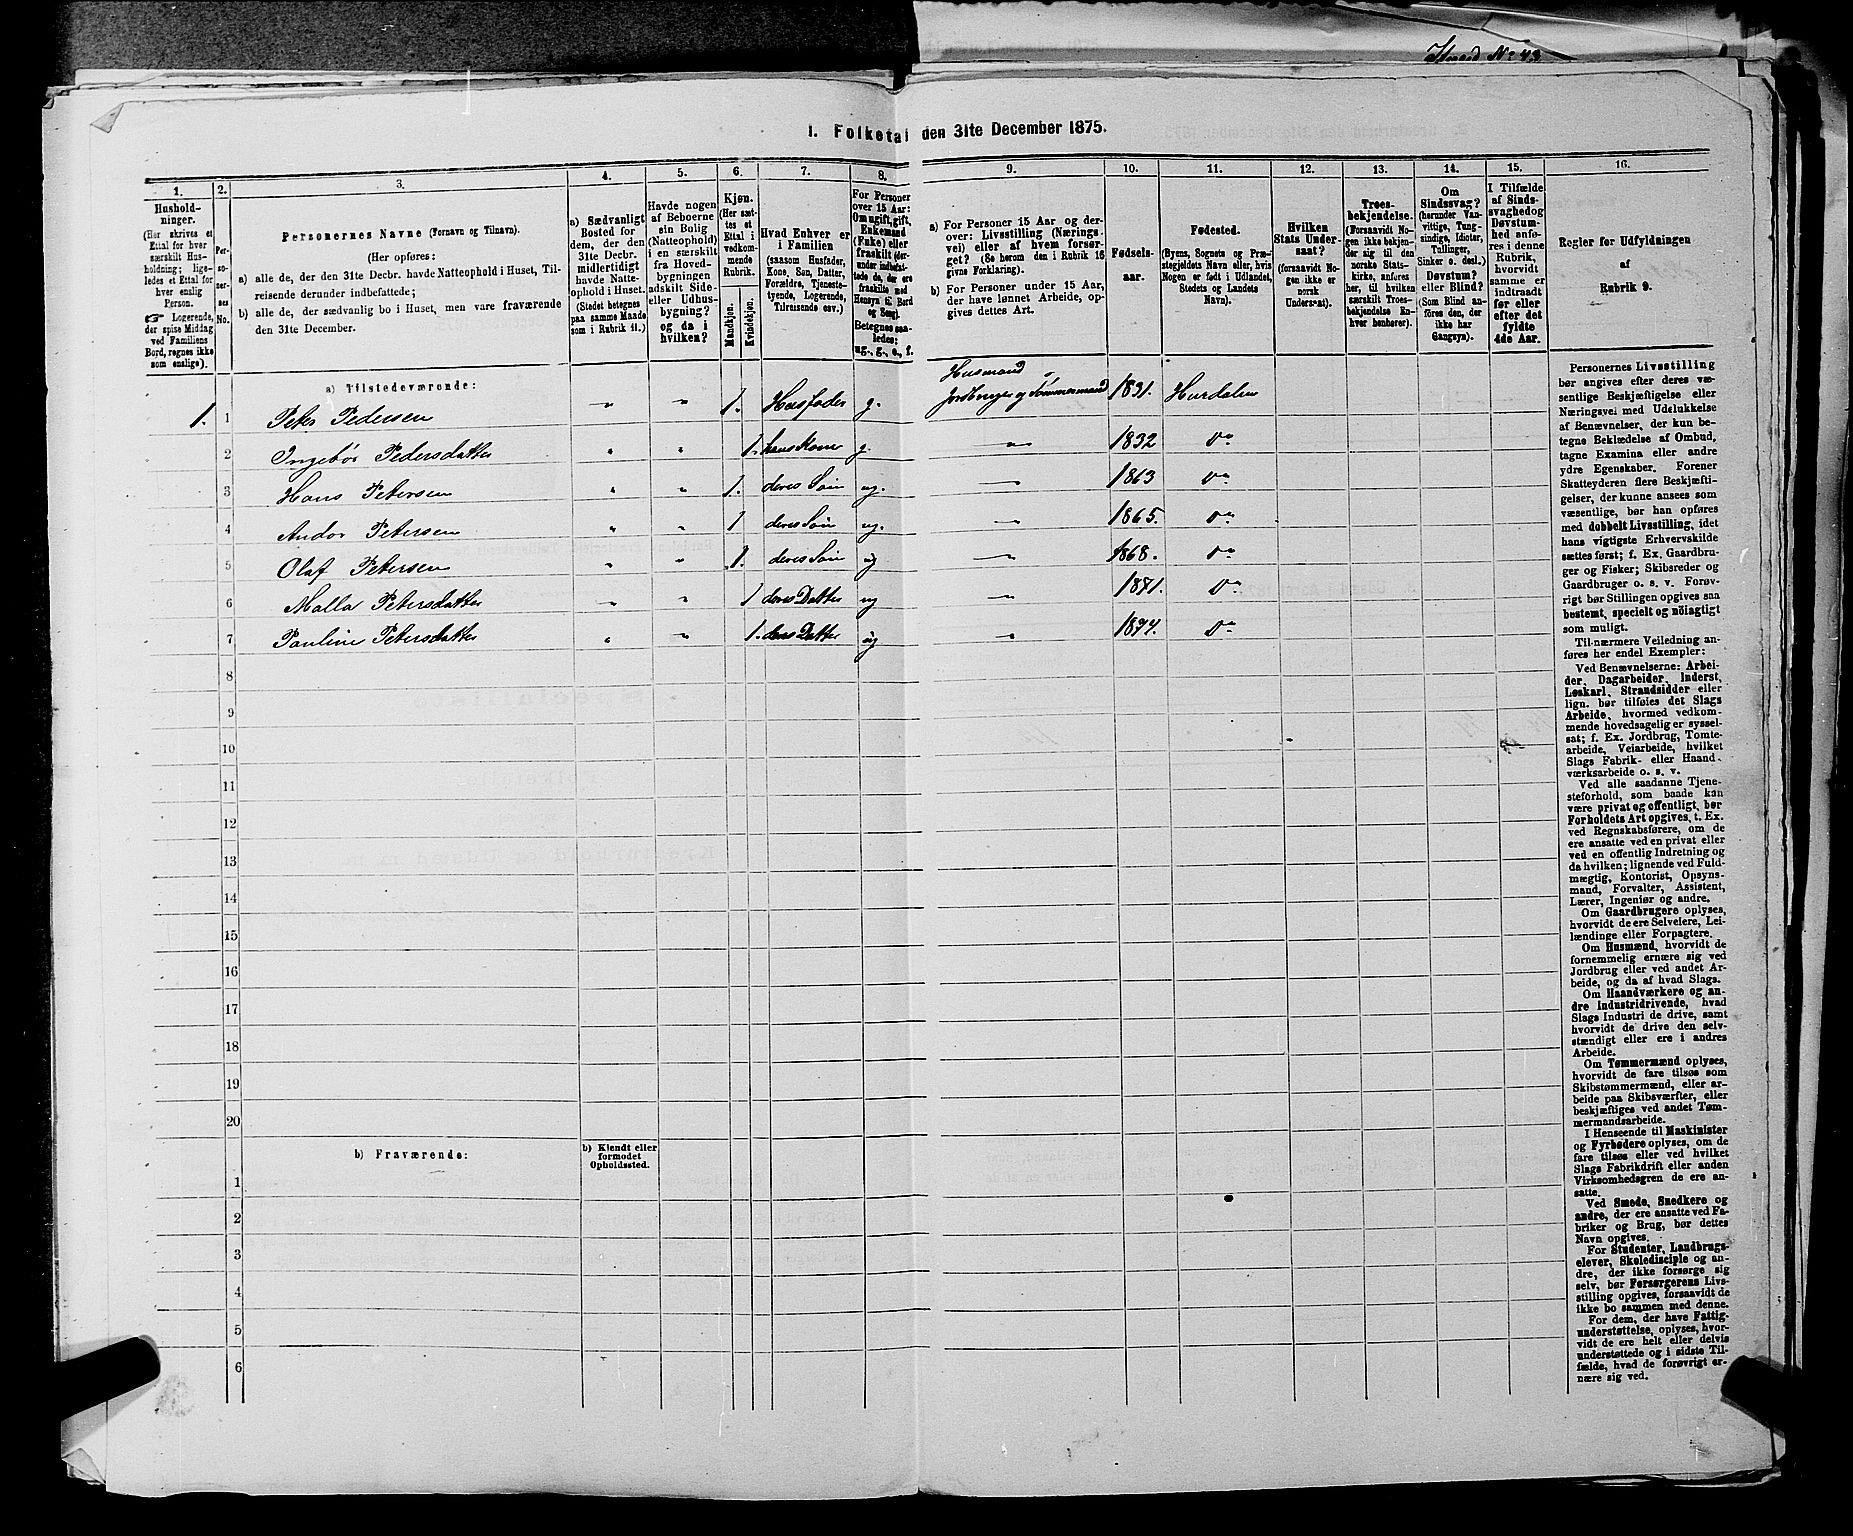 I. Folketal den 31te December 1875.
1.
Hushold-
ninger.
(Her skrives et
Ettal for hver
særskilt Hus-
holdning; lige-
ledes et Ettal for
hver enslig
Person.
☞ Logerende,
der spise Middag
ved Familiens
Bord, regnes ikke
som enslige).
2.
Per-
so-
ner-
nes
No.
3.
Personernes Navne (Fornavn og Tilnavn).
(Her opføres:
a) alle de, der den 31te Decbr. havde Natteophold i Huset, Til-
reisende derunder indbefattede;
b) alle de, der sædvanlig bo i Huset, men vare fraværende
den 31te December.
4.
a) Sædvanligt
Bosted for
dem, der den
31te Decbr.
midlertidigt
havde Natte-
ophold i Huset.
(Stedet betegnes
paa samme Maade
som i Rubrik 11.)
5.
Havde nogen
af Beboerne
sin Bolig
(Natteophold)
i en særskilt
fra Hoved-
bygningen
adskilt Side-
eller Udhus-
bygning?
og da i
hvilken?
6.
Kjøn.
(Her sæt-
tes et
Ettal i
vedkom-
mende
Rubrik.
Mandkjøn.
Kvindekjøn.
7.
Hvad Enhver er
i Familien
(saasom Husfader,
Kone, Søn, Datter,
Forældre, Tjeneste-
tyende, Logerende,
Tilreisende osv.)
8.
For Personer
over 15 Aar:
Om ugift, gift,
Enkemand
(Enke) eller
fraskilt (der-
under indbefat-
tede de, der ere
fraskilte med
Hensyn til Bord
og Seng).
Betegnes saa-
ledes:
ug., g., e., f.
9.
a) For Personer 15 Aar og der-
over: Livsstilling (Nærings-
vei) eller af hvem forsør-
get? (Se herom den i Rubrik 16
givne Forklaring).
b) For Personer under 15 Aar,
der have lønnet Arbeide, op-
gives dettes Art.
10.
Fødsels-
aar.
11.
Fødested.
(Byens, Sognets og Præ-
stegjeldets Navn eller, hvis
Nogen er født i Udlandet,
Stedets og Landets
Navn).
12.
Hvilken
Stats Under-
saat?
(forsaavidt No-
gen ikke er
norsk
Undersaat).
13.
Troes-
bekjendelse.
(Forsaavidt No-
gen ikke bekjen-
der sig til den
norske Stats-
kirke, anføres
her, til hvilken
særskilt Troes-
bekjendelse En-
hver henhører).
14.
Om
Sindssvag?
(herunder Van-
vittige, Tung-
sindige, Idioter,
Tullinger,
Sinker o. desl.)
Døvstum?
eller Blind?
(Som Blind an-
føres den, der
ikke har
Gangsyn).
15.
I Tilfælde
af Sinds-
svaghed og
Døvstum-
hed anfø-
res i denne
Rubrik,
hvorvidt
samme er
indtraadt
før eller
efter det
fyldte
4de Aar.
16.
Regler for Udfyldningen
af
Rubrik 9.
a) Tilstedeværende:
1. 1 Peter Pedersen " " 1. Husfader g. Husmand Jordbruger og Tømmermand 1831. Hurdalen
2 Ingebor Pedersdatter " " 1. hans Kone g. " 1832 Do
3 Hans Petersen " " 1. deres Søn ug. " 1863 Do
4 Andor Petersen " " 1 deres Søn ug. " 1865. Do
5 Olaf Petersen " " 1. deres Søn ug " 1868. Do
6 Malla Petersdatter " " 1 deres Datter ug " 1871. Do
7 Pauline Petersdatter " " 1. deres Datter ug " 1874. Do
8
9
10
11
12
13
14
15
16
17
18
19
20
b) Fraværende:
b) Kjendt eller
formodet
Opholdssted.
1
2
3
4
5
6
Personernes Livsstilling
bør angives efter deres væ-
sentlige Beskjæftigelse eller
Næringsvei med Udelukkelse
af Benævnelser, der kun be-
tegne Beklædelse af Ombud,
tagne Examina eller andre
ydre Egenskaber. Forener
Skatteyderen flere Beskjæfti-
gelser, der kunne ansees som
væsentlige, bør han opføres
med dobbelt Livsstilling, idet
hans vigtigste Erhvervskilde
sættes først; f. Ex. Gaardbru-
ger og Fisker; Skibsreder og
Gaardbruger o. s. v. Forøv-
rigt bør Stillingen opgives saa
bestemt, specielt og nöiagtigt
som muligt.
Til nærmere Veiledning an-
føres her endel Exempler:
Ved Benævnelserne: Arbei-
der, Dagarbeider, Inderst,
Løskarl, Strandsidder eller
lign. bør tilføies det Slags
Arbeide, hvormed vedkom-
mende hovedsagelig er syssel-
sat; f. Ex. Jordbrug, Tomte-
arbeide, Veiarbeide, hvilket
Slags Fabrik- eller Haand-
værksarbeide o. s. v.
Ved alle saadanne Tjene-
steforhold, som baade kan
være privat og offentligt, bør
Forholdets Art opgives, t. Ex.
ved Regnskabsførere, om de
ere ansatte ved en privat eller
ved en offentlig Indretning og
da hvilken; lignende ved Fuld-
mægtig, Kontorist, Opsyns-
mand, Forvalter, Assistent,
Lærer, Ingeniør og andre.
Om Gaardbrugere oplyses,
hvorvidt de ere Selveiere, Lei-
lændinge eller Forpagtere.
Om Husmænd, hvorvidt de
fornemmelig ernære sig ved
Jordbrug eller ved andet Ar-
beide, og da af hvad Slags.
Om Haandværkere og an-
dre Industridrivende, hvad
Slags Industri de drive, samt
hvorvidt de drive den selv-
stændigt eller ere i andres
Arbeide.
Om Tømmermænd oplyses,
hvorvidt de fare tilsøs som
Skibstømmermænd, eller ar-
beide paa Skibsværfter, eller
beskjæftiges ved andet Tøm-
mermandsarbeide.
I Henseende til Maskinister
og Fyrbødere oplyses, om de
fare tilsøs eller ved hvilket
Slags Fabrikdrift eller anden
Virksomhedsgren de ere an-
satte.
Ved Smede, Snedkere og
andre, der ere ansatte ved Fa-
briker og Brug, bør dettes
Navn opgives.
For Studenter, Landbrugs-
elever, Skoledisciple og an-
dre, der ikke forsørge sig
selv, bør Forsørgerens Livs-
stilling opgives, forsaavidt de
ikke bo sammen med denne.
For dem, der have Fattig-
understøttelse, oplyses, hvor-
vidt de ere helt eller delvis
understøttede og i sidste Til-
fælde, hvad de forøvrigt er-
nære sig ved.